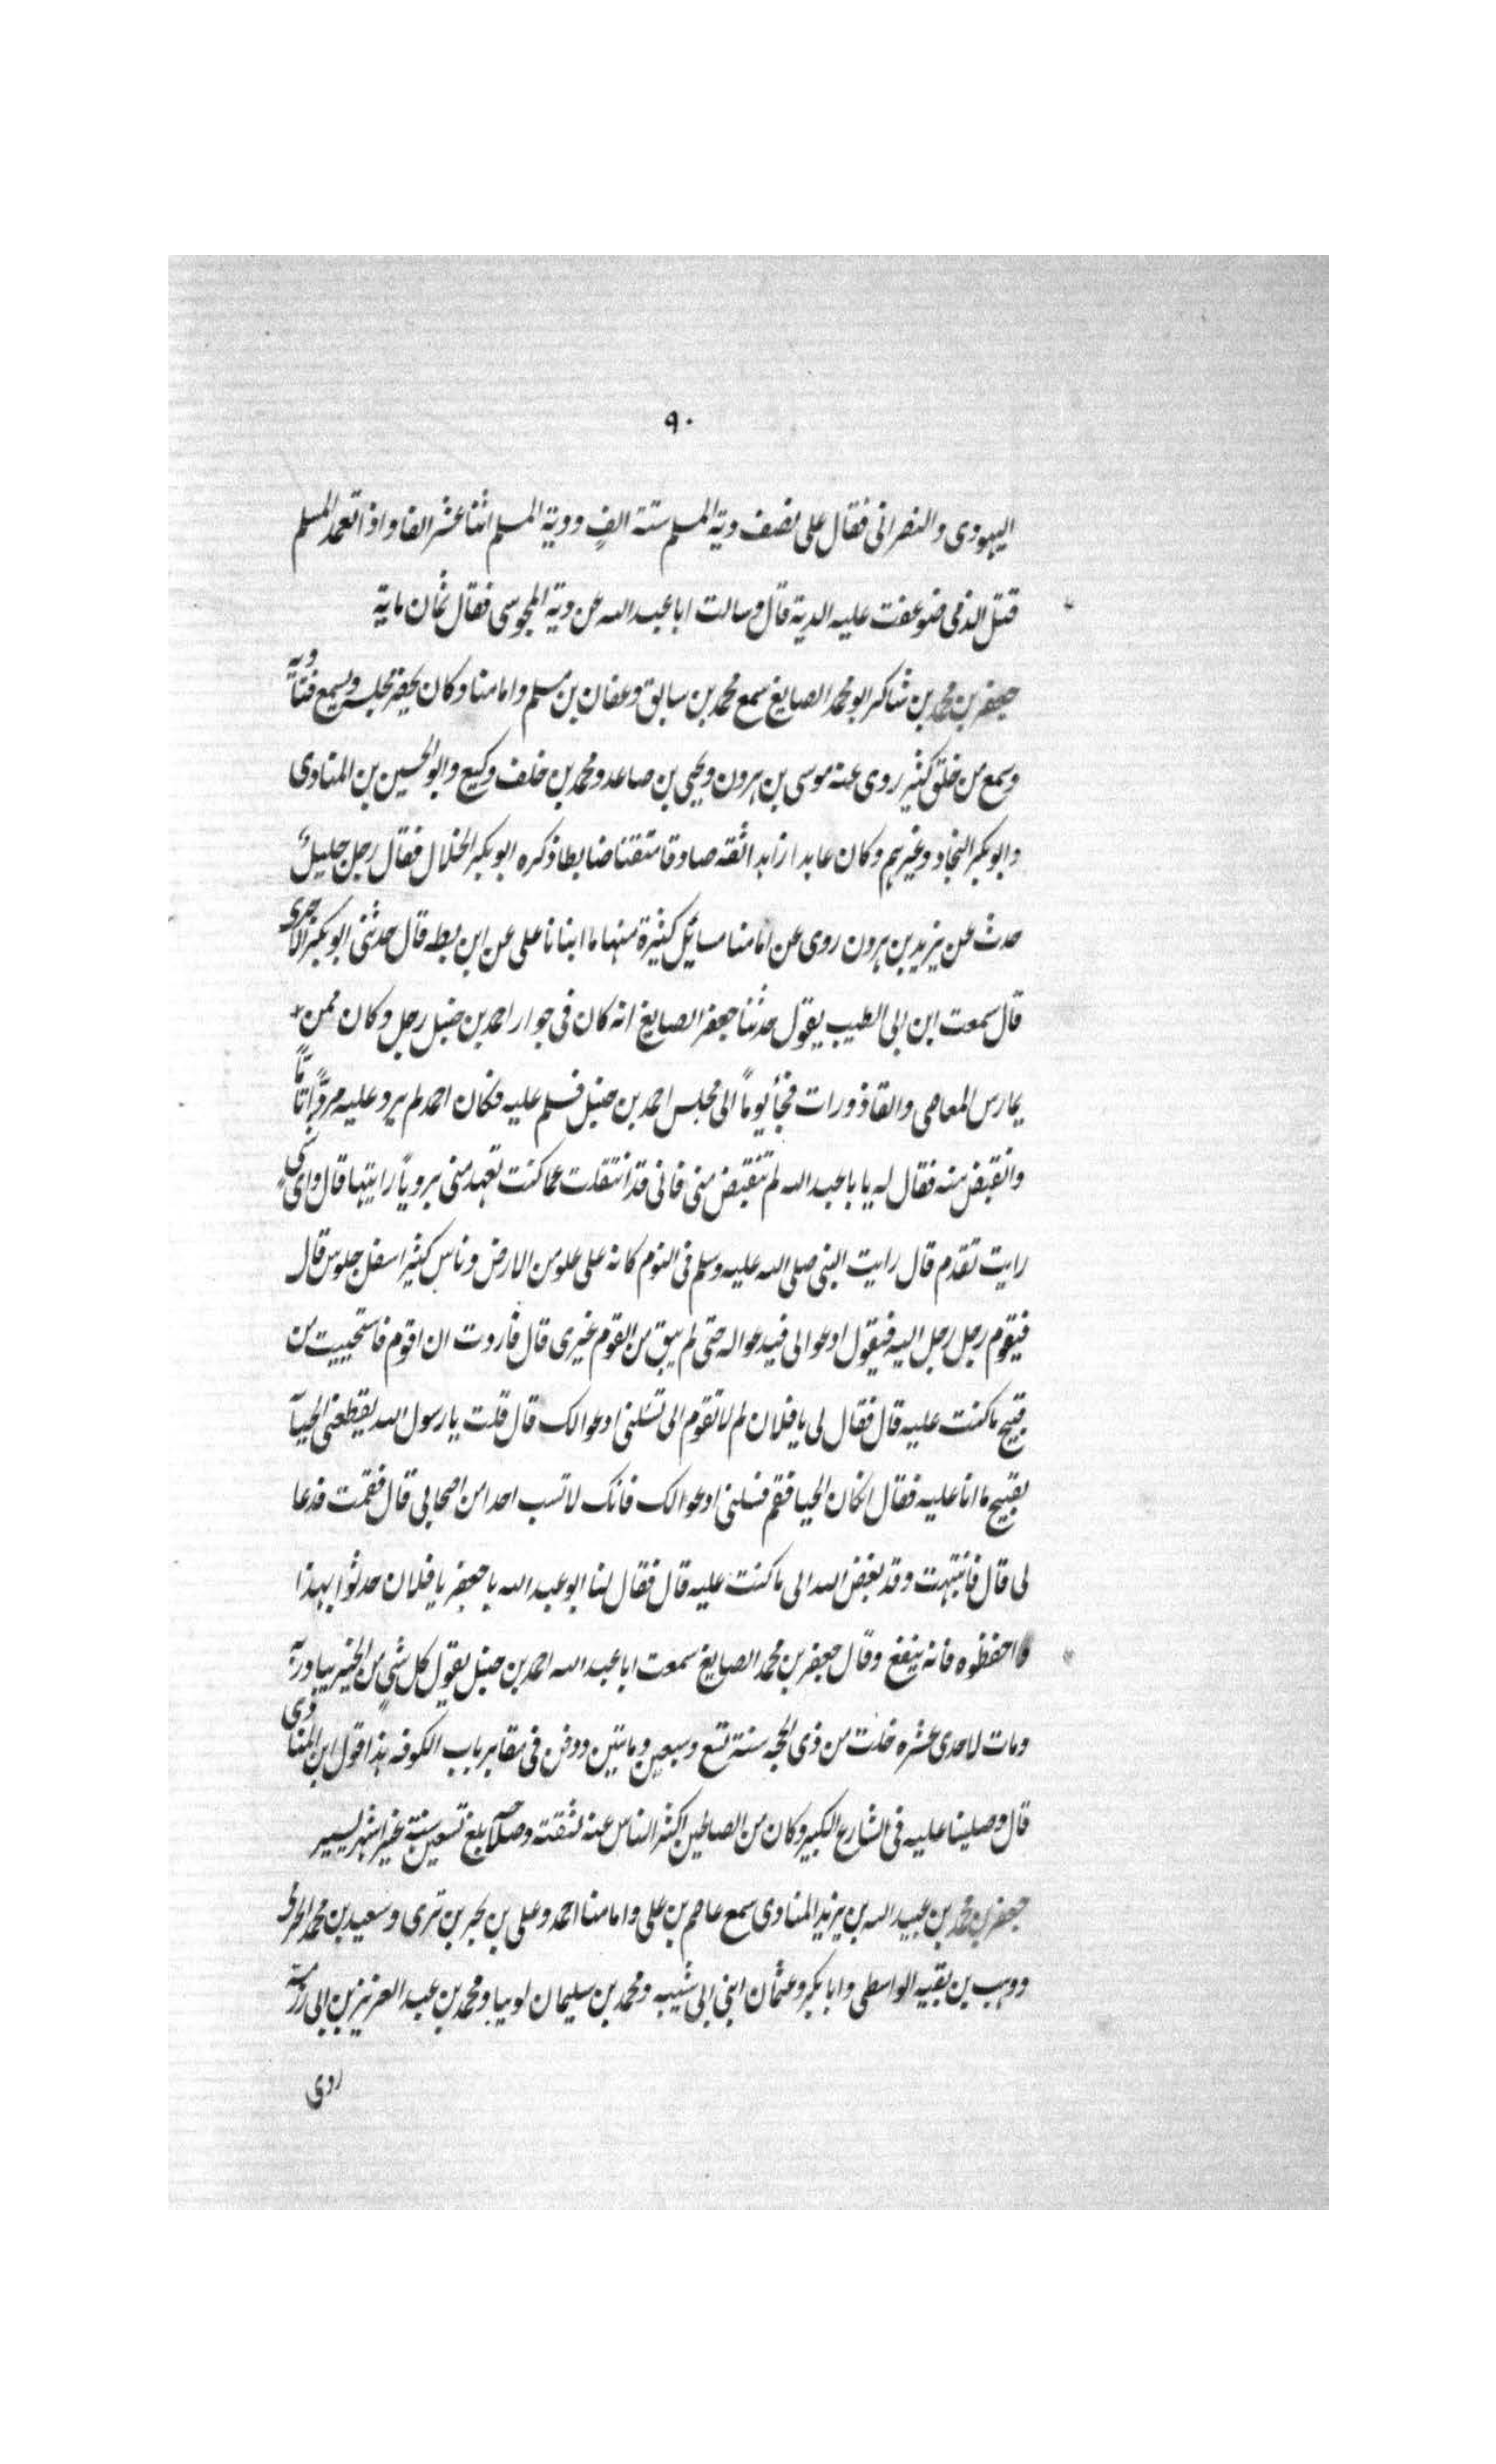 ٩٠
اليهودى والنصرانى فقال على نصف دية المسلم ستة الفٍ ودية المسلم اثنا عشر الفا واذا تعمد المسلم
قتل الذمى ضوعفت عليه الدية قال وسالت ابا عبد الله عن دية المجوسى فقال ثمان ماية
جعفر بن محمد بن شاكر ابو محمد الصايغ سمع محمد بن سابق وعفان بن مسلم وامامنا وكان يحضر مجلسه ويسمع فتاويه
وسمع من خلق كثير روى عنه موسى بن هرون ويحيى بن صاعد ومحمد بن خلف وكيع وابو الحسين بن المنادى
وابو بكر النجاد وغيرهم وكان عابدا زاهدا ثقة صادقا متقنا ضابطا ذكره ابو بكر الخلال فقال رجل جليل
حدث عن يزيد بن هرون روى عن امامنا مسائل كثيرة منها ما انبانا على عن ابن بطه قال حدثنى ابو بكر الاجرى
قال سمعت ابن ابى الطيب يقول حدثنا جعفر الصايغ انه كان فى جوار احمد بن حنبل رجل وكان ممن
يمارس المعاصى والقاذورات فجأ يوماً الى مجلس احمد بن حنبل فسلم عليه فكان احمد لم يرد عليه مرداً تاماً
وانقبض منه فقال له يا با عبد الله لم تنقبض منى فانى قد انتقلت عما كنت تعهد منى برويأ رايتها قال واى شى
رايت تقدم قال رايت النبى صلى الله عليه وسلم فى النوم كانه على علو من الارض وناس كثير اسفل جلوس قال
فيقوم رجل رجل اليه فيقول ادعوا لى فيدعو اله حتى لم يبق من القوم غيرى قال فاردت ان اقوم فاستحييت من
قبيح ما كنت عليه قال فقال لى يا فلان لم لا تقوم الى تسئلنى ادعوا لك قال قلت يا رسول الله يقطعنى الحيآ
بقبيح ما انا عليه فقال انكان الحيا فقم فسلنى ادعوا لك فانك لا تسب احدا من اصحابى قال فقمت فدعا
لى قال فانتبهت وقد بغض الله الى ما كنت عليه قال فقال لنا ابو عبد الله يا جعفر يا فلان حدثوا بهذا
واحفظوه فانه ينفع وقال جعفر بن محمد الصايغ سمعت ابا عبد الله احمد بن حنبل يقول كل شىٍ من الخير يبادر به
ومات لاحدى عشره خلت من ذى الحجه سنة تسع وسبعين ومايتين ودفن فى مقابر باب الكوفه هذا قول ابن المنادى
قال وصلينا عليه فى الشارع الكبير وكان من الصالحين اكثر الناس عنه لثقته وصلاحه بلغ تسعين سنة غير اشهر يسير
جعفر بن محمد بن عبيد الله بن يزيد المنادى سمع عاصم بن على وامامنا احمد وعلى بن بحر بن برى وسعيد بن محمد الجرمى
ووهب بن بقيه الواسطى وابا بكر وعثمان ابنى ابى شيبه ومحمد بن سليمان لوينا ومحمد بن عبد العزيز بن ابى رزمه
روى